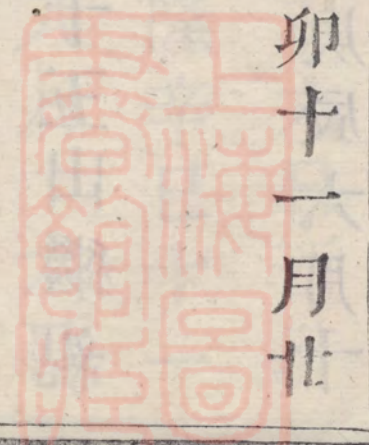 卯十一月廿
上海圖
書館藏